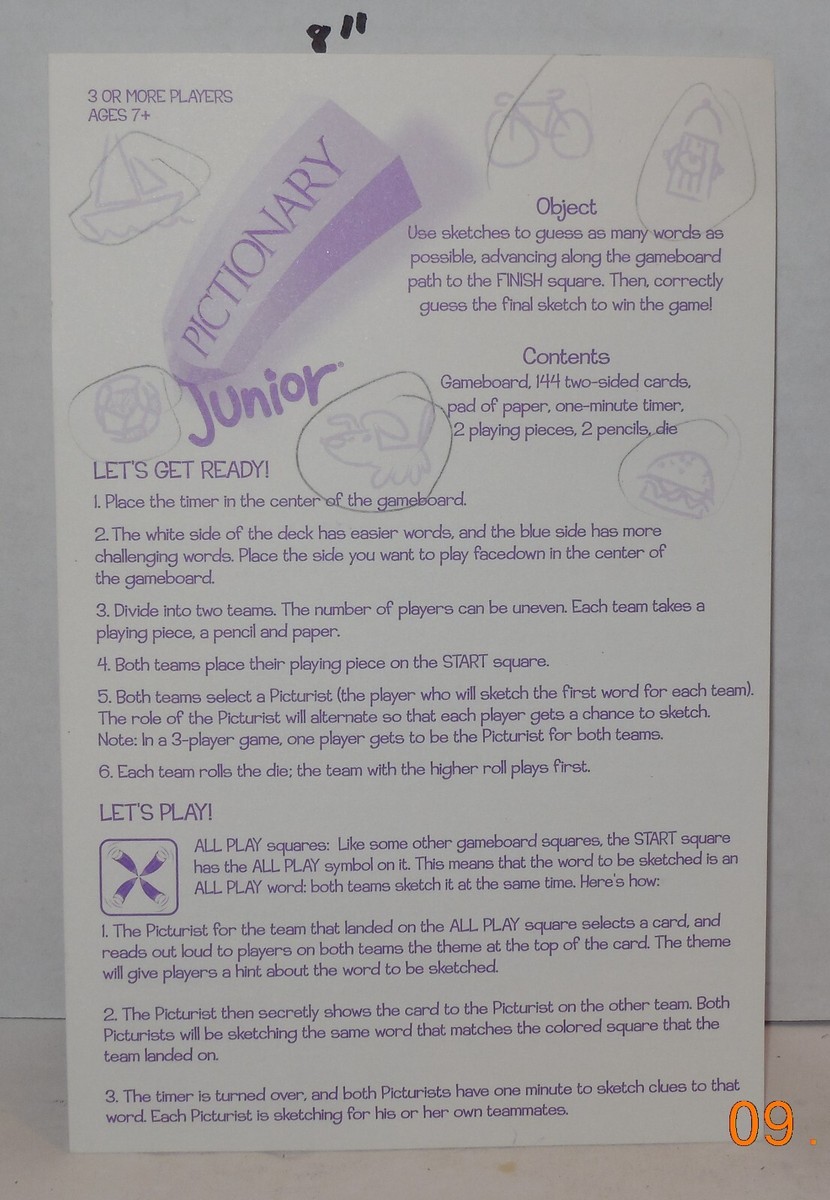 8"
3 OR MORE PLAYERS
AGES 7+
PICTIONARY
Junior®
Object
Use sketches to guess as many words as
possible, advancing along the gameboard
path to the FINISH square. Then, correctly
guess the final sketch to win the game!
Contents
Gameboard, 144 two-sided cards,
pad of paper, one-minute timer,
2 playing pieces, 2 pencils, die
LET'S GET READY!
1. Place the timer in the center of the gameboard.
2. The white side of the deck has easier words, and the blue side has more
challenging words. Place the side you want to play facedown in the center of
the gameboard.
3. Divide into two teams. The number of players can be uneven. Each team takes a
playing piece, a pencil and paper.
4. Both teams place their playing piece on the START square.
5. Both teams select a Picturist (the player who will sketch the first word for each team).
The role of the Picturist will alternate so that each player gets a chance to sketch.
Note: In a 3-player game, one player gets to be the Picturist for both teams.
6. Each team rolls the die; the team with the higher roll plays first.
LET'S PLAY!
ALL PLAY squares: Like some other gameboard squares, the START square
has the ALL PLAY symbol on it. This means that the word to be sketched is an
ALL PLAY word: both teams sketch it at the same time. Here's how:
1. The Picturist for the team that landed on the ALL PLAY square selects a card, and
reads out loud to players on both teams the theme at the top of the card. The theme
will give players a hint about the word to be sketched.
2. The Picturist then secretly shows the card to the Picturist on the other team. Both
Picturists will be sketching the same word that matches the colored square that the
team landed on.
3. The timer is turned over, and both Picturists have one minute to sketch clues to that
word. Each Picturist is sketching for his or her own teammates.
09 .